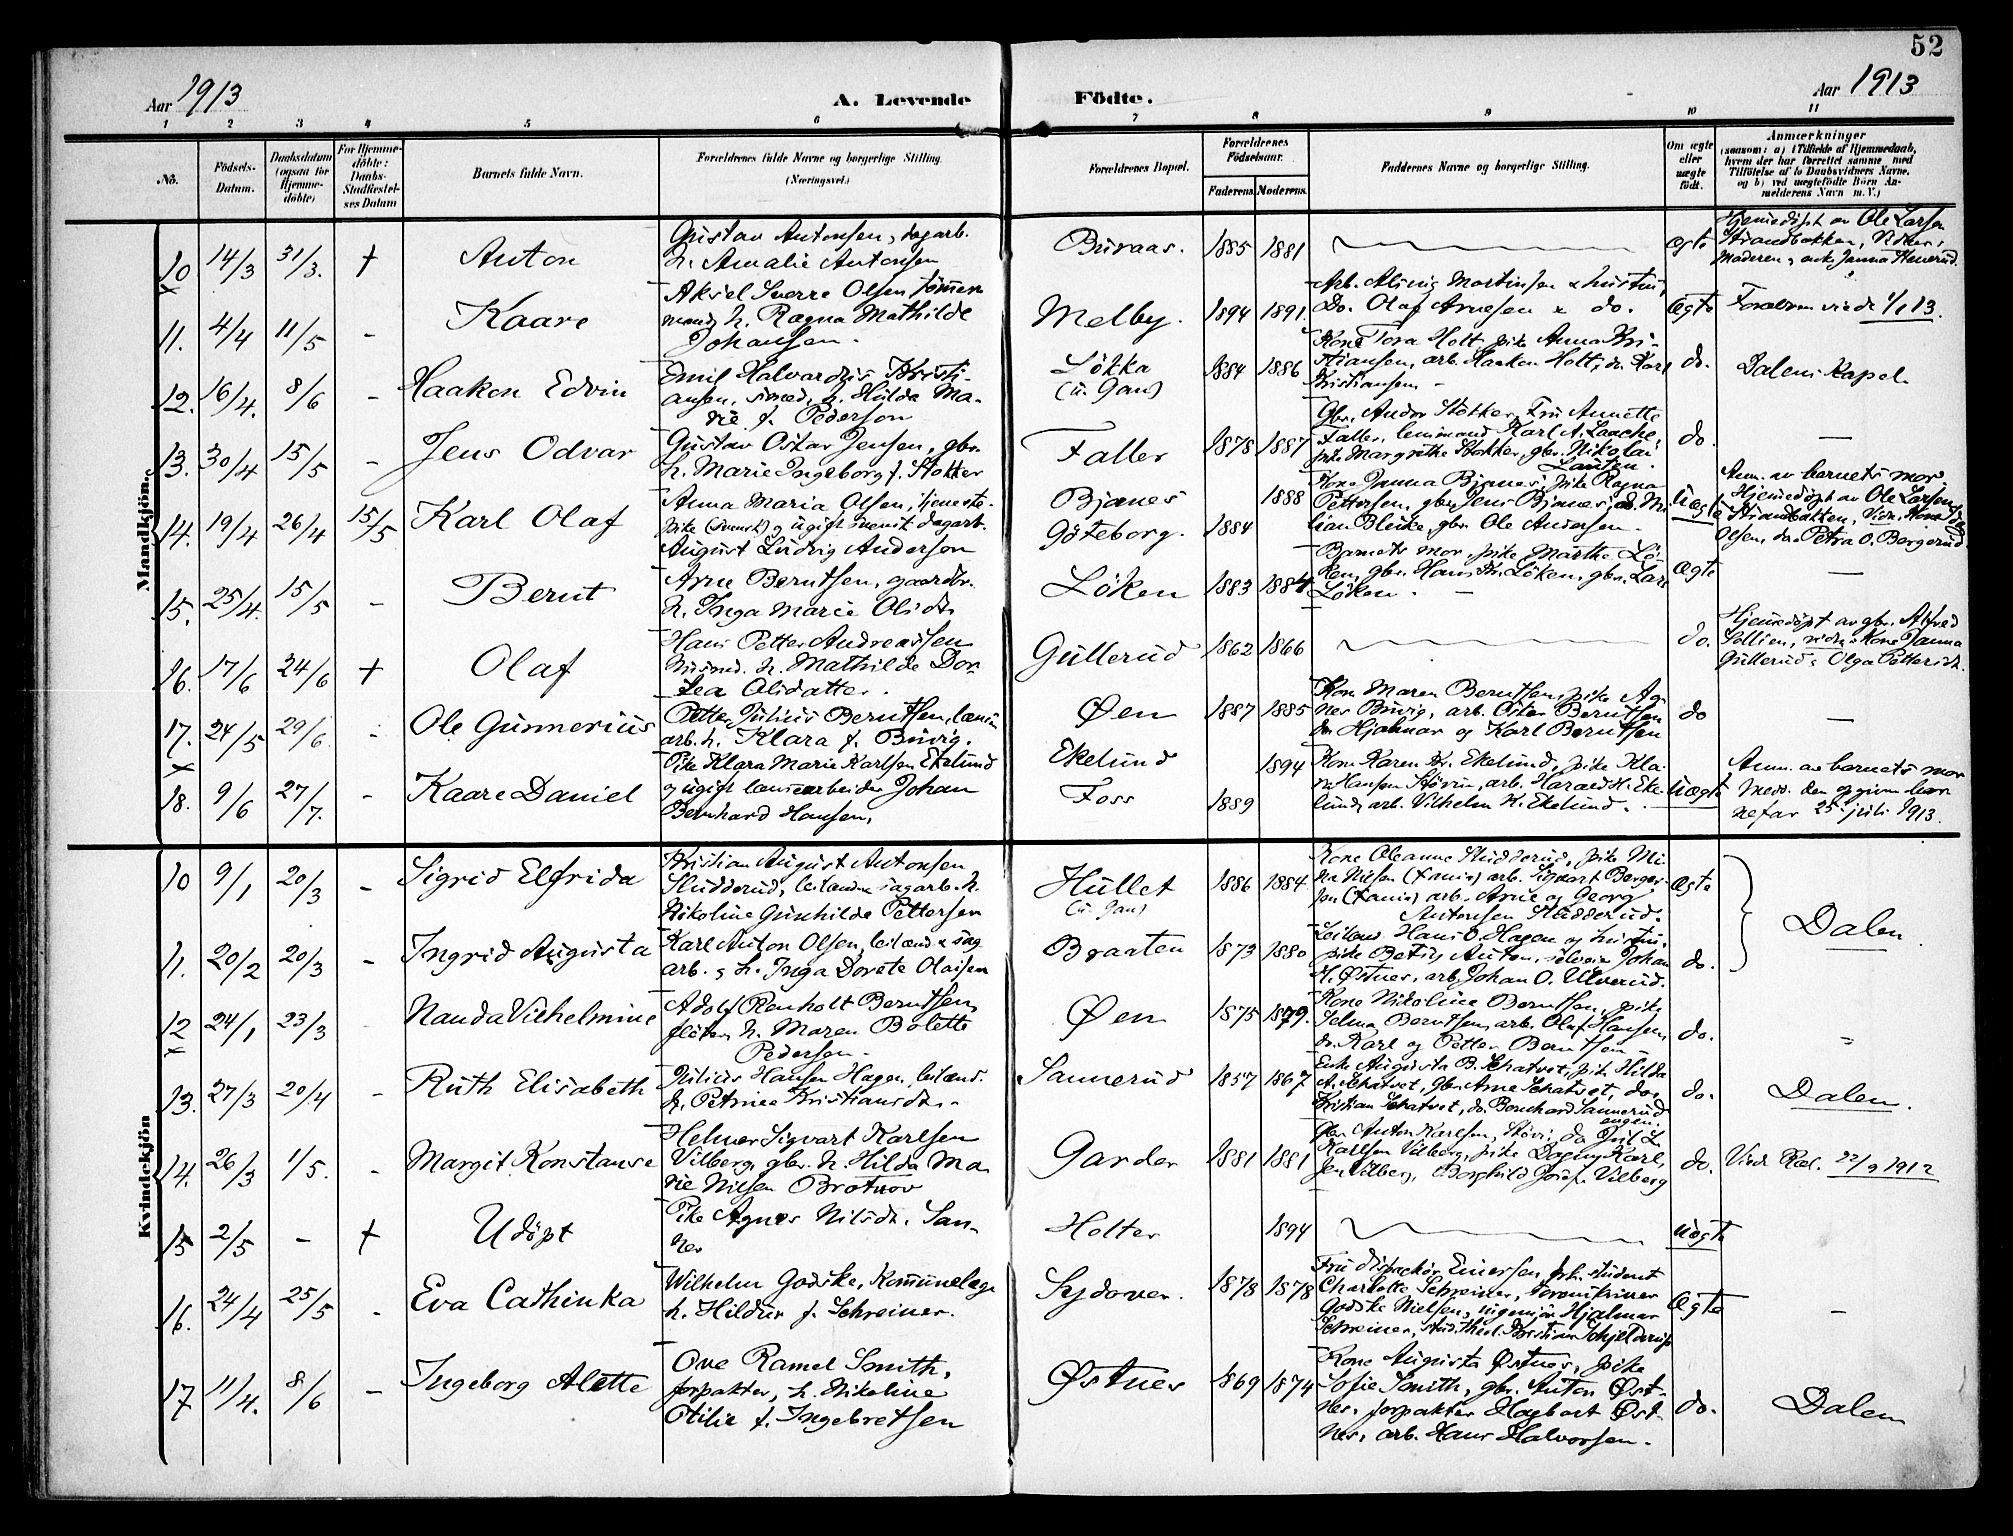 52
Aar 1913
A. Levende Födte.
Aar 1913
1 2 3 4 5 6 7 8 9 10 11
No.
Födsels-Datum.
Daabsdatum (ogsaa for Hjemme-döbte)
For Hjemme-döbte: Daabs-Stadfæstel-ses Datum
Barnets fulde Navn.
Forældrenes fulde Navne og borgerlige Stilling. (Næringsvei.)
Forældrenes Bopæl.
Forældrenes Födselsaar.
Faderens. Moderens.
Faddernes Navne og borgerlige Stilling.
Om ægte eller uægte født.
Anmærkninger
(saasom: a) i Tilfælde af Hjemmedaab, hvem der har forrettet samme, med Tilföielse af to Daabsvidners Navne, og b) ved uægtefödte Börn Anmelderens Navn m. V.)
Mandkjön.
10 14/3 31/3. + Anton
Gustav Antonsen, dagarb.
h. Amalie Antonsen
Buraas. 1885 1881
ægte
Hjemedöpt av Ole Larsen
Strandbakken, Vidner:
Moderen, enk. Janna
11. 4/4 11/5 - Kaare
Aksel Sverre Olsen tömmer
mand, h. Ragna Mathilde
Johansen.
Melby. 1894 1891.
Arb. Martinsen & hustru,
Do. Olaf Arnesen & do.
Ægte
Forældrene viede 1/1 13.
12. 16/4. 8/6 - Haakon Edvin
Emil Halvardzis Kristi-
ansen, smed, h. Hilda Ma-
rie f. Pederson
Lökka
(u. Gan)
1884 1886
Kone Tora Holt, pike Anna Kri-
stiansen, arb. Haakon Holt, do Karl
Kristiansen -
do.
Dalen Kapel
13. 30/4 15/5 - Jens Odvar
Gustav Oskar Jensen, gbr.
h. Marie Ingeborg f. Stokker
Faller 1878 1887
Gbr. Andor Stokker, Fru Annette
Faller, lensmand Karl A. Laache,
pike Margrethe Stokker, gbr. Nikolai
do. -
14. 19/4 26/4 15/5 Karl Olaf
Anna Maria Olsen, tjeneste-
pike (svensk) og ugift svensk dagarb.
August Ludvig Anderson
Bjanes 1888
Göteborg. 1884
Kone Janna Bjanes, pike Ragna
Pettersen, gbr. Jens Bjanes,
gbr. Ole Andersen.
Uægte
Anm. av barnets mor.
Hjemedöpt av Ole Larsen
Strandbakken, Vidn. Kone
Olsen, do Petra O. Bergerud
15. 25/4. 15/5 - Bernt
Arne Berntsen, gaardbr.
h. Inga Marie Olsdtr.
Löken 1883 1884
Barnets mor, pike Marthe Lö-
ken, gbr. Hans Kr. Löken, gbr. Lars
Löken. -
Ægte -
16. 17/6 24/6 + Olaf
Hans Petter Andreassen
Husmd. h. Mathilde Dor-
tea Olsdatter.
Gullerud 1862 1866
do.
Hjemedöpt av gbr. Alfred
Sollien, vidn. Kone Janna
Gullerud & Olga Pettersen.
17. 24/5 29/6. - Ole Gunnerius
Petter Julius Berntsen, lænse
arb. h. Klara f. Buvig.
Øen 1887 1885
Kone Maren Berntsen, pike Ag-
nes Buvig, arb. Oskar Berntsen
do Hjalmar og Karl Berntsen
do -
18. 9/6 27/7. - Kaare Daniel
Pike Klara Marie Karlsen Ekelund
og ugift lænsearbeider Johan
Bernhard Hansen.
Ekelund 1894
Foss 1889
Kone Karen Kr. Ekelund, pike Kla-
ra Hansen Stören, arb. Harald H. Eke-
lund, arb. Vilhelm K. Ekelund.
Uægte
Anm. av barnets mor
Medd. den opgivne bar-
nefar 25 juli 1913.
Kvindekjön
10 9/1 20/3 - Sigrid Elfrida
Kristian August Antonsen
Sludderud, leilænd. sagarb. h.
Nikoline Gunhilde Pettersen
Hullet
(u. Gan)
1886 1884
Kone Oleanne Sludderud, pike Mi-
na Nilsen (Fania) arb. Sigvart Berger-
sen (Fania) arb. Arne og Georg
Antonsen Sludderud.
Ægte
Dalen
11. 20/2 20/3 - Ingrid Augusta
Karl Anton Olsen, leilænd & sag
arb. & h. Inga Dorete Olaisen
Braaten 1873 1880
Leilend Hans O. Hagen og hustru,
pike Betsy Auton, Johan
H. Østnes, arb. Johan O. Ulverud.
do.
12 24/1 23/3 Nanda Vilhelmine
Adolf Renholt Berntsen,
flöter, h. Maren Bolette
Pedersen -
Øen 1875 1879.
Kone Nikoline Berntsen, pike
Selma Berntsen, arb. Olaf Hansen,
do. Karl og Petter Berntsen -
do.
13. 27/3 20/4 - Ruth Elisabeth
Julius Hansen Hagen, leilænd.
h. Petrine Kristiansdtr. -
Sannerud 1857 1867
Enke Augusta B. Skatvet, pike Hilda
A. Skatvet, gbr. Arne Skatvet, do
Kristian Skatvet, do. Bernhard Sannerud
do.
Dalen.
14. 26/3 1/5. - Margit Konstanse
Helmer Sigvart Karlsen
Vilberg, gbr. h. Hilda Ma-
rie Nilsen Brotnov
Garder 1881 1881
Gbr. Anton Karlsen, Støvi, do
Karlsen Vilberg, pike Dagny Karl-
sen Vilberg, Borghild Josef. Vilberg
do.
Viede Ræl. 22/9 1912
15 2/5 - + Udöpt
Pike Agnes Nilsdtr. San-
ner
Holter 1894
uægte
16. 24/4 25/5 - Eva Cathinka
Wilhelm Godske, Kommunelæge
h. Hildur f. Schreiner.
Sydover. 1878 1878
Fru dispachör Einersen, frk. student
Charlotte Schreiner,
Godske Nielsen, ingeniör Hjalmar
Schreiner, stud. theol. Kristian Schjelderup
Ægte -
17 11/4. 8/6 - Ingeborg Alette
Ove Ramel Smith,
forpakter, h. Nikoline
Otilie f. Ingebretsen
Østnes 1869 1874
Kone Augusta Østnes, pike
Sofie Smith, gbr. Anton Øst-
nes, forpakter Hagbart Øst-
nes, arb. Hans Halvorsen.
do.
Dalen